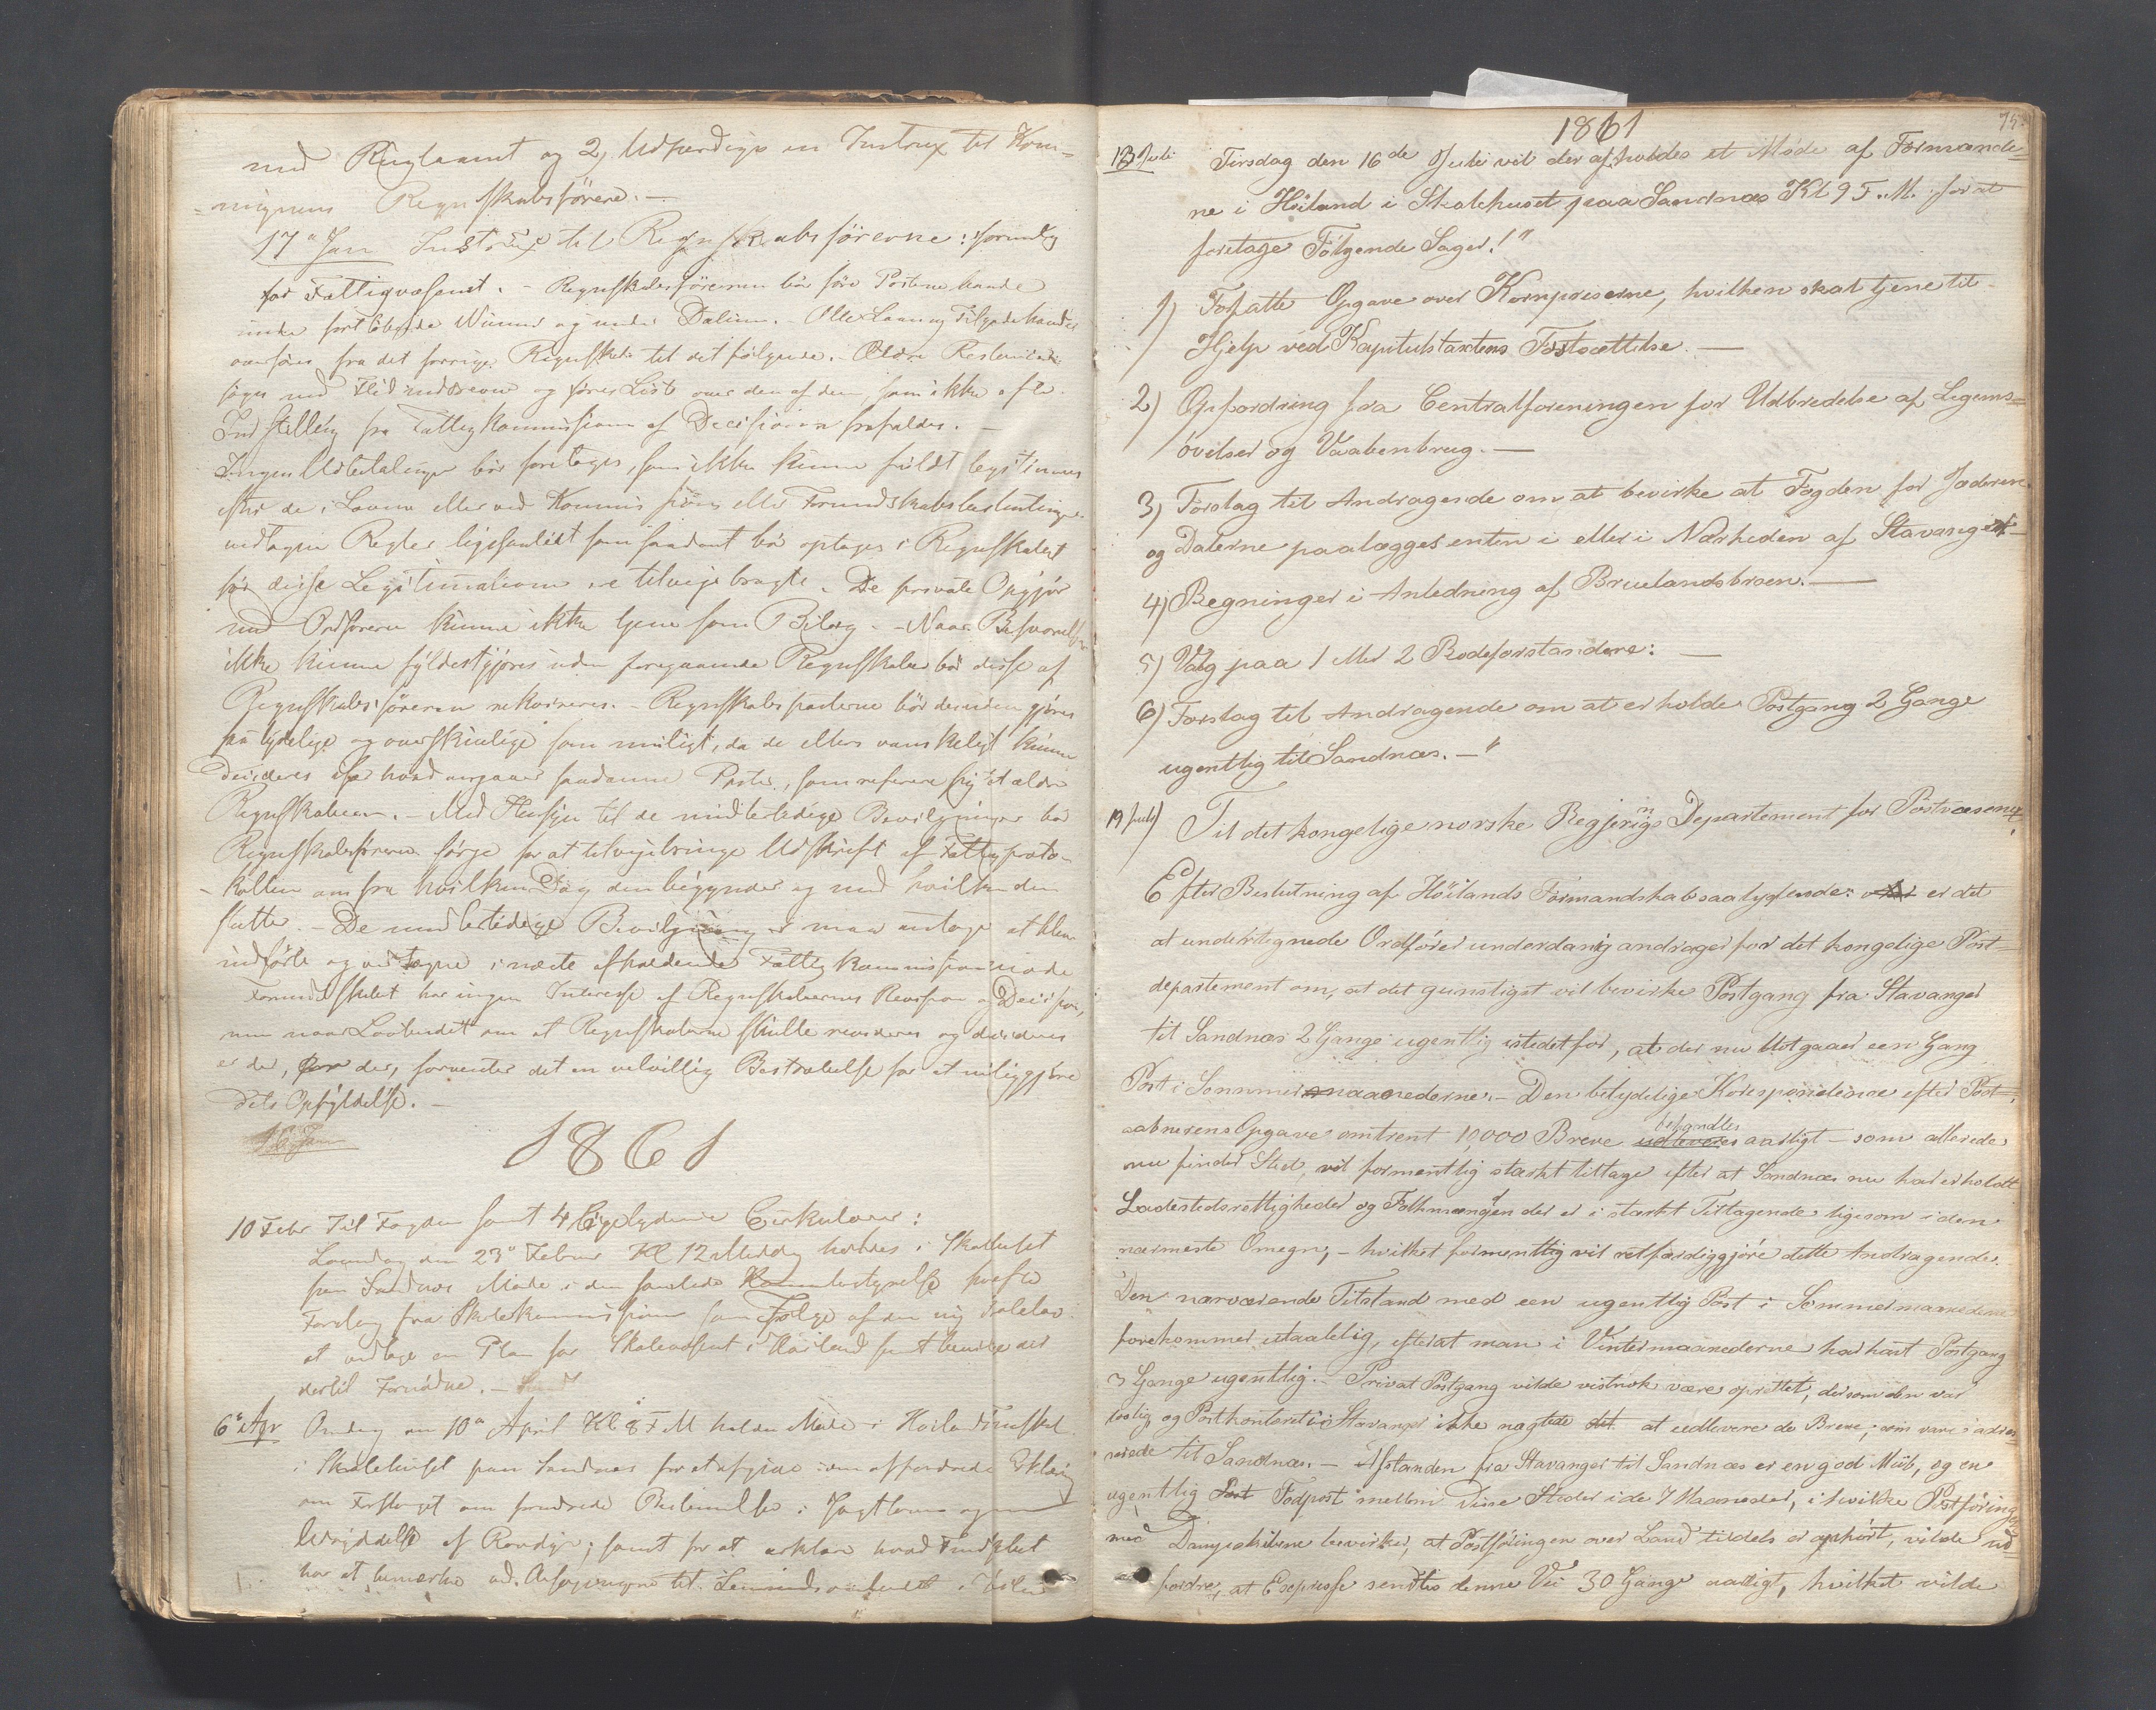 med Reglement og 2, Udfærdige en Instrux til Kom-
-munens Regnskabsförere. -
17de Jan Instrux til Regnskabsförerne: forundtg
for Fattigvæsenet. - Regnskabsföreren bör före Posterne
under fortlöbende Numer og under Datum. Alle Laan og Tilgodehavender
overföres fra det forrige Regnskab til det fölgende. - Ældre Restancer
söges med Flid inddrevne og föres Liste over den af dem, som ikke efter
Indstilling fra Fattigkommissionen af Decisionen frafaldes. -
Ingen Udbetalinger bör foretages, som ikke kunne fuldt legitimeres
efter de i Loven eller ved Kommissions eller Formandskabsbeslutninger
vedtagne Regler ligesaalidt som saadant bör optages i Regnskabet
för disse Legitimationer ere tilveiebragte. De private Opgjör
med Ordföreren kunne ikke tjene som Bilag. - Naar Besvarelser
ikke kunne fyldestgjöres uden foregaaende Regnskaber bör disse af
Regnskabsföreren rekvireres. - Regnskabsposterne bör desuden gjöres
saa tydelige og overskuelige som muligt, da de ellers vanskeligt kunne
decideres især hvad angaaer saadanne Poster, som referere sig til ældre
Regnskaber. - Med Hensyn til de midlertidige Bevilgninger bör
Regnskabsföreren sörge for at tilveiebringe Udskrift af Fattigproto-
-kollen om fra hvilken Dag den begynder og med hvilken den
slutter. - De midlertidige Bevilgninger maa antages at blive
indförte og vedtagne i næste afholdende Fattigkommissionsmöde
Formandskabet har ingen Interesse af Regnskabernes Revision og Decision,
men naar Lovbudet om at Regnskaberne skulle revideres og decideres
er der, forventer det en velvillig Bestræbelse for at muliggjöre
dets Opfyldelse. -
1861
10 Febr Til Fogden samt 4 ligelydende Cirkulærer:
Löverdag den 23de Februar Kl 12 Middag holdes i Skolehuset
paa Sandnæs Möde i den samlede Kommunebestyrelse for efter
Forslag fra Skolekommissionen som Fölge af den ny Skolelov
at vedtage en Plan for Skolevæsenet i Höiland samt bevilge det
dertil Fornödne. -
6te Apr Onsdag den 10de April Kl 8 F M holdes Möde i Höilands Fmskab
i Skolehuset paa Sandnæs for at afgive den affordrede Erklæring
om Forslaget om forandrede Bestemmelser i Jagtloven og om
Udryddelse af Rovdyr; samt for at erklære hvad Fmdskabet
har at bemærke ad. Ansögningerne til
1861
75.
13 Juli Tirsdag den 16de Juli vil der afholdes et Möde af Formænde-
ne i Höiland i Skolehuset paa Sandnæs Kl 9 F.M. for at
foretage Fölgende Sager!"
1) Forfatte Opgave over Kornpriserne, hvilken skal tjene til
Hjelp ved Kapitulstaxtens Fastsættelse. -
2) Opfordring fra Centralforeningen for Udbredelse af Legems-
övelser og Vaabenbrug. -
3) Forslag til Andragende om at bevirke at Fogden for Jæderen
og Dalerne paalægges enten i eller i Nærheden af Stavanger -
4) Regninger i Anledning af Bruelandsbroen. -
5) Valg paa 1 eller 2 Rodeforstandere: -
6) Forslag til Andragende om at erholde Postgang 2 Gange
ugentlig til Sandnæs. -"
19 Juli) Til det kongelige norske Regjerings Departement for Postvæsenet,
Efter Beslutning af Höilands Formandskab saalydende: er det
at undertegnede Ordförer underdanig andrager for det kongelige Post-
departement om, at det gunstigst vil bevirke Postgang fra Stavanger
til Sandnæs 2 Gange ugentlig istedetfor, at der nu Udgaaer een Gang
Post i Sommermaanederne. - Den betydelige Korespondence efter Post-
aabnerens Opgave omtrent 10,000 Breve udleveres behandles aarligt - som allerede
nu finder Sted, vil formentlig stærkt tiltage efter at Sandnæs nu har erholdt
Ladestedsrettigheder og Folkmængden der er i stærkt Tiltagende ligesom i den
nærmeste Omegn; - hvilket formentlig vil retfærdiggjöre dette Andragende.
Den nærværende Tilstand med een ugentlig Post i Sommermaanederne
forekommer utaalelig, efterat man i Vintermaanederne har havt Postgang
3 Gange ugentlig. - Privat Postgang vilde vistnok være oprettet, dersom den var
lovlig og Postkontoret i Stavanger ikke nægtede det at udlevere de Breve, som vare adres-
serede til Sandnæs. - Afstanden fra Stavanger til Sandnæs er en god Miil, og en
ugentlig Post Fodpost mellem Disse Steder i de 7 Maaneder, i hvilke Postföringen
med Dampskibene bevirker, at Postföringen over Land tildels er ophört, vilde ud-
fordre, at Expresse sendtes denne Vei 30 Gange aarligt, hvilket vilde